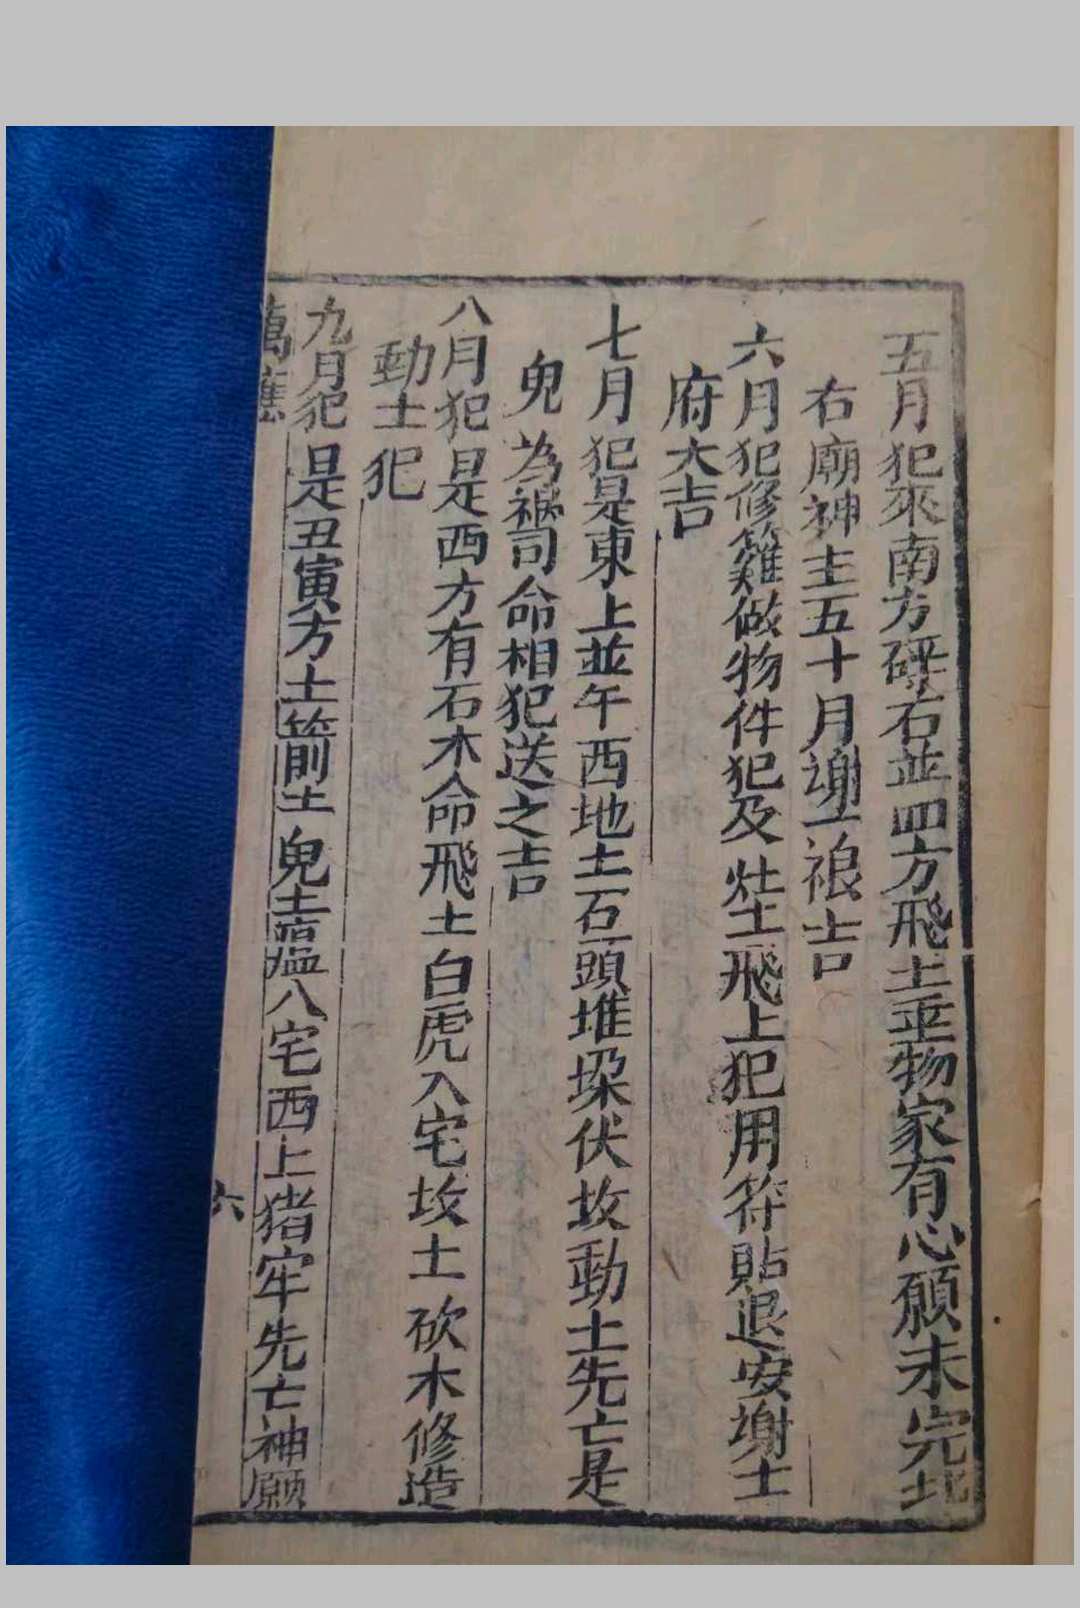 五月犯來南方砰石並四方飛土並物家有心願未完北
右廟神主五十月謝土禳吉
六月犯修籬做物件犯及灶土飛上犯用符貼退安謝士
府大吉
七月犯是東上並午西地土石頭堆垜伏坟動土先亡是
鬼為禍司命相犯送之吉
八月犯是西方有石木命飛土白虎入宅坟土砍木修造
動土犯
九月犯是丑寅方土箭土鬼土瘟八宅西上猪牢先亡神願
萬應
六